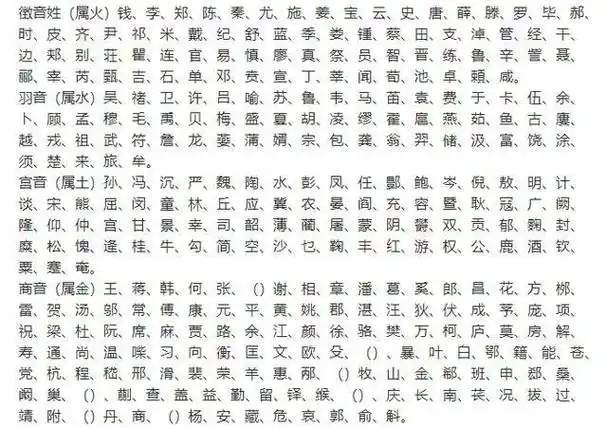 徵音姓（属火）钱、李、郑、陈、秦、尤、施、姜、宝、云、史、唐、薛、滕、罗、毕、郝、
时、皮、齐、尹、祁、米、戴、纪、舒、蓝、季、娄、锺、蔡、田、支、淖、管、经、干、
边、郏、别、荘、瞿、连、官、易、慎、廖、真、祭、员、智、晋、练、鲁、辛、訾、聂、
郦、宰、芮、甄、吉、石、单、邓、贲、宣、丁、莘、闻、荀、池、卓、頼、咸。
羽音（属水）吴、褚、卫、许、吕、喻、苏、鲁、韦、马、苗、袁、费、于、卡、伍、余、
卜、顾、孟、穆、毛、禹、贝、梅、盛、夏、胡、凌、缪、霍、扈、燕、茹、鱼、古、廖、
越、戎、祖、武、符、詹、龙、蒌、蒲、娟、宗、包、龚、翁、羿、储、汲、富、饶、涂、
须、楚、来、旅、牟。
宫音（属土）孙、冯、沉、严、魏、陶、水、彭、凤、任、酆、鲍、岑、倪、敖、明、计、
谈、宋、熊、屈、闵、童、林、丘、应、冀、农、晏、阎、充、容、暨、耿、冠、广、阙、
隆、仰、仲、宫、甘、景、幸、司、韶、薄、蔺、屠、蒙、阴、鬱、双、贡、郁、麴、封、
糜、松、愧、逄、桂、牛、勾、简、空、沙、乜、鞠、丰、红、游、权、公、鹿、酒、钦、
粟、蹇、奄。
商音（属金）王、蒋、韩、何、张、（）谢、相、章、潘、葛、奚、郎、昌、花、方、
雷、贺、汤、邬、常、傅、康、元、平、黄、姚、郡、湛、汪、狄、伏、成、茅、庞、项、
祝、梁、杜、阮、席、麻、贾、路、余、江、颜、徐、骆、樊、万、柯、庐、莫、房、解、
寿、通、尚、温、习、向、衡、匡、文、欧、殳、（）、暴、叶、白、鄂、籍、能、苍、
党、杭、程、嵇、邢、滑、裴、荣、羊、惠、（）牧、山、金、郗、班、申、郄、桑、
阚、巢、（）、蒯、查、盖、益、勤、留、铎、缑、（）、庆、长、南、苌、况、拔、过、
靖、附、（）丹、商、（）杨、安、藏、危、哀、郭、俞、斛。